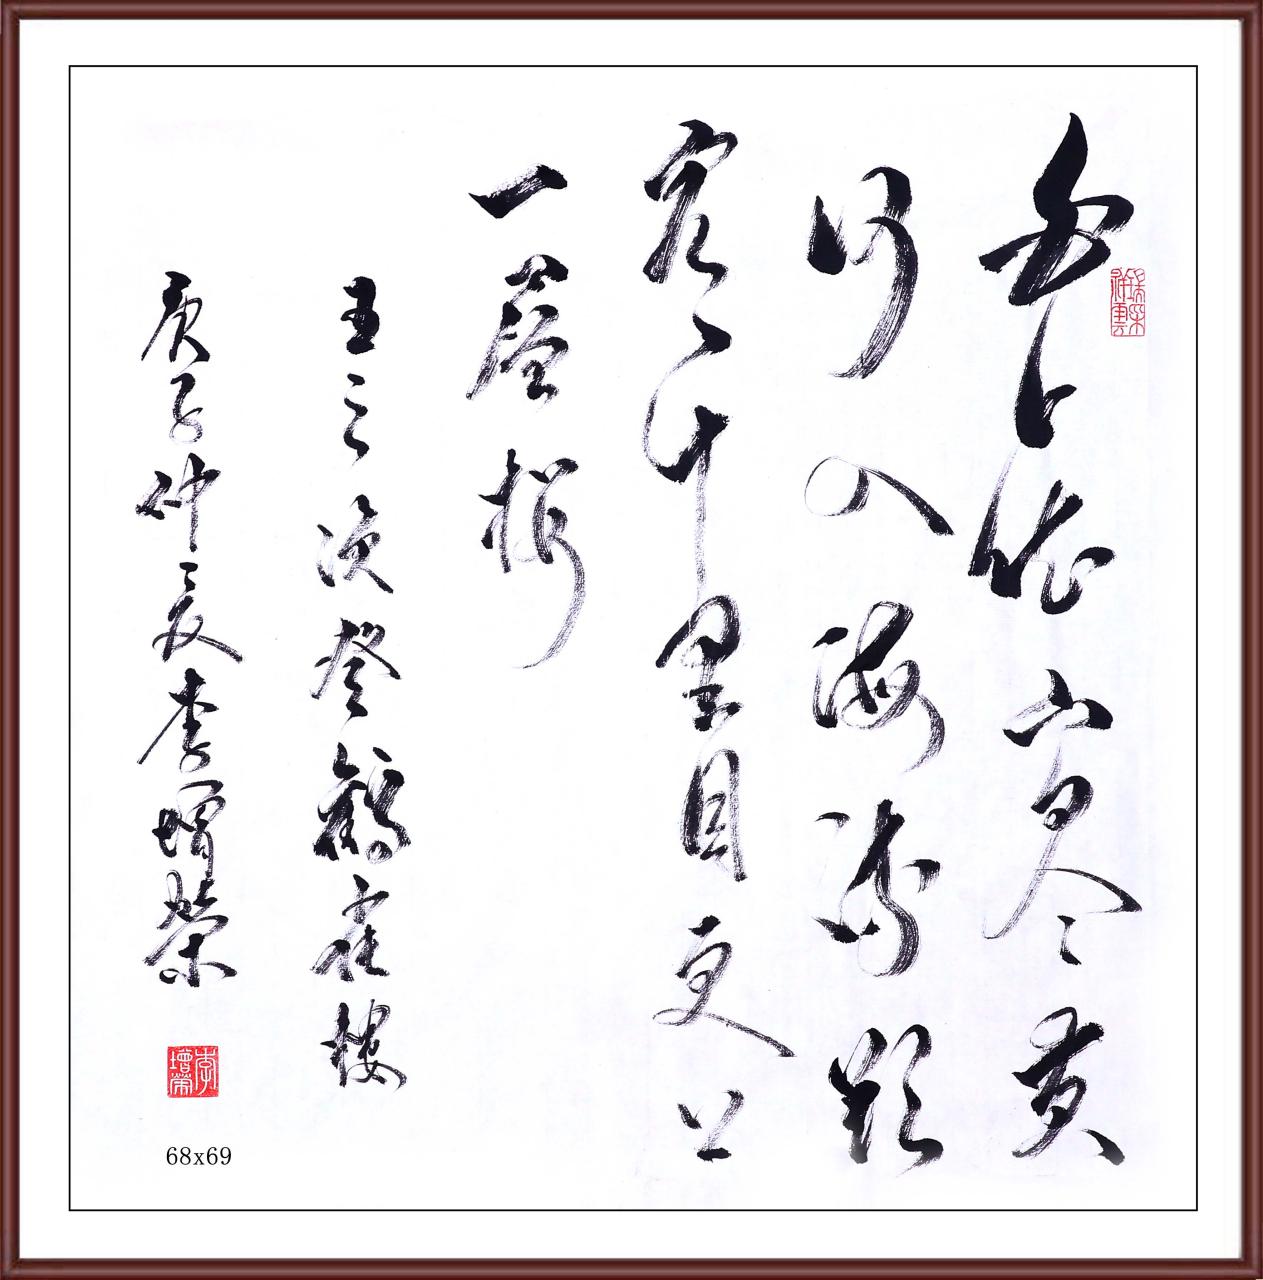 白日依山尽黄
河入海流欲
窮千里目更上
一層楼
王之涣登鹳雀楼
庚子仲夏李增荣
李增榮
68x69